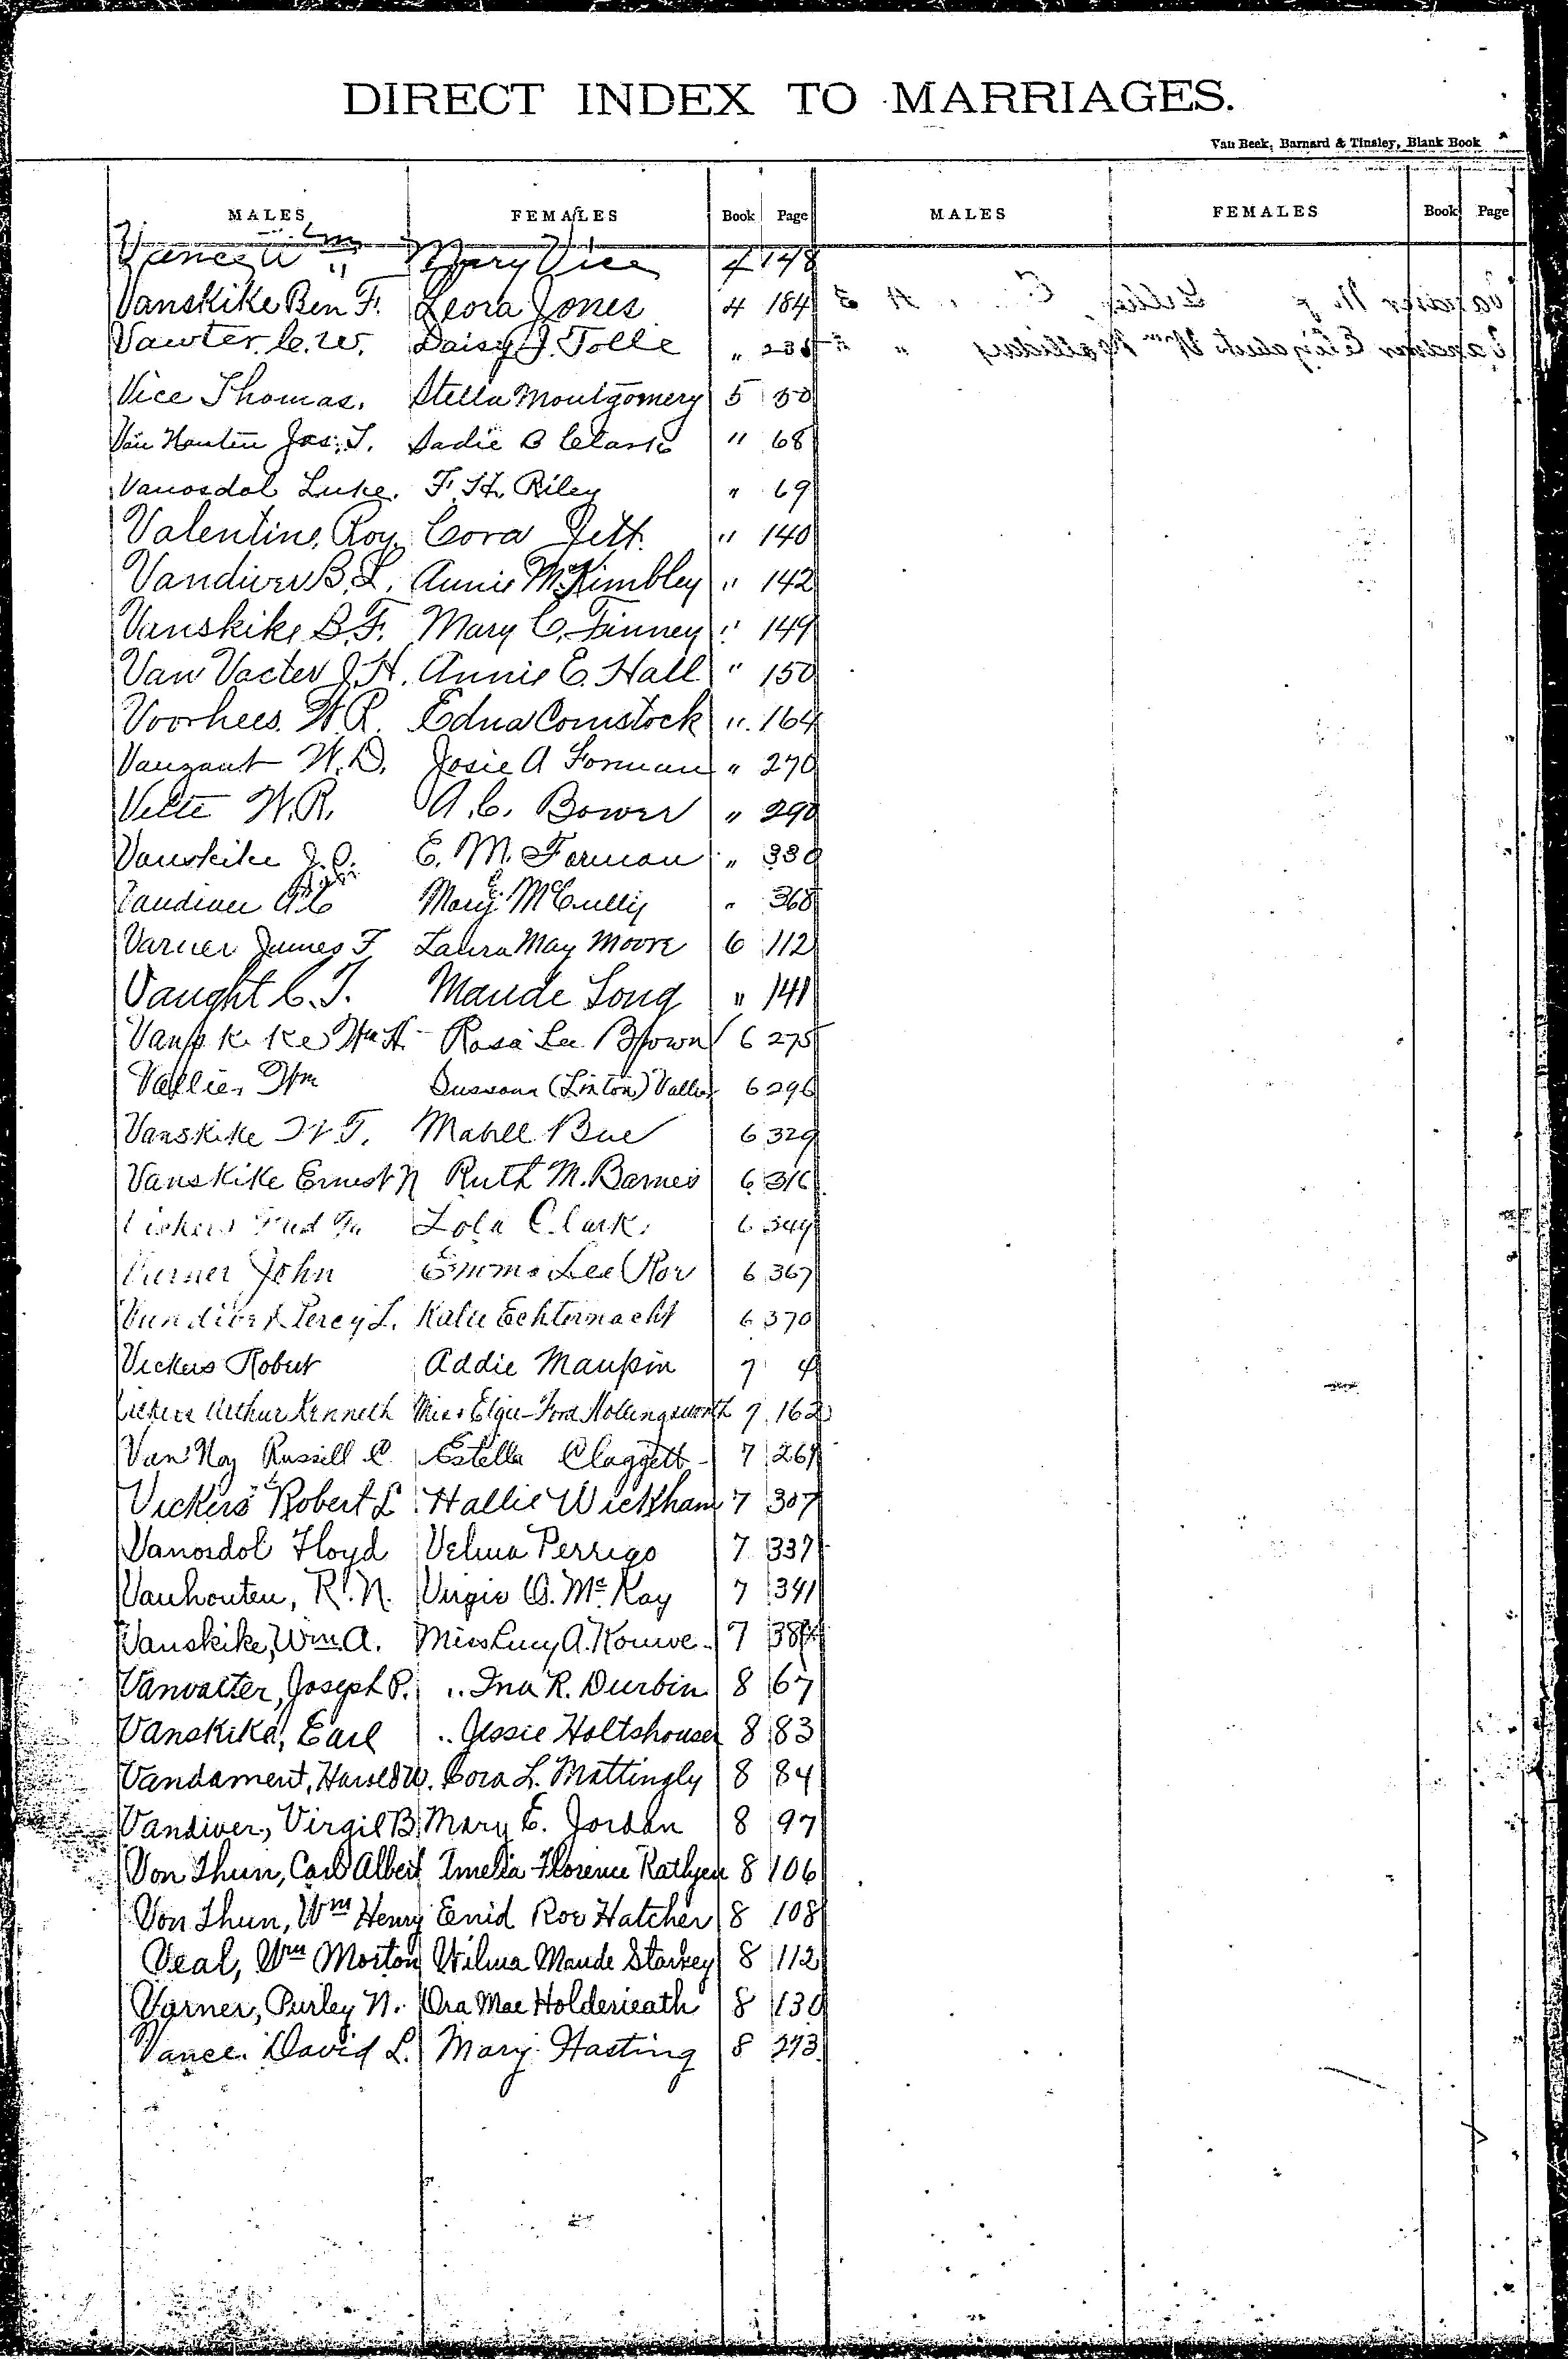 DIRECT INDEX TO MARRIAGES.
Van Beek, Barnard & Tinsley, Blank Book
MALES FEMALES Book Page MALES FEMALES Book Page
Vance Wm Mary Vice 4 148
Vanskike Ben F. Leora Jones 4 184
Vawter C. W. Daisy J. Tolle "
Vice Thomas. Stella Montgomery 5 30
Van Houten Jas. T. Sadie B Clark " 68
Vanosdol Luke. F. H. Riley " 69
Valentine, Roy. Cora Jett. " 140
Vandiver B. L. Annie M. Kimbley " 142
Vanskike B. F. Mary C. Finney " 149
Van Vacter J. H. Annie E. Hall " 150
Voorhees. W. R. Edna Comstock " 164
Vanzant W. D. Josie A Forman " 270
Velte W. R. A. C. Bower " 290
Vanskike J. O. E. M. Forman " 330
Vandiver Mary McCully " 368
Varner James F Laura May Moore 6 112
Vaught C. T. Maude Long " 141
Vanskike Wm A. Rosa Lee Brown 6 275
Vallier Wm Sussana (Linton) Vallier 6 296
Vanskike W T. Mabel Bue 6 329
Vanskike Ernest N Ruth M. Barnes 6 316
Vickers Fred Lola Clark. 6 349
Varner John Emma Lee Roy 6 367
Vandiver Percy L. Katie Echternacht 6 370
Vickers Robert Addie Maupin 7 4
Vickers Arthur Kenneth Miss Elgie-Fora Hollingsworth 7 162
Van Noy Russell C. Estella Claggett 7 261
Vickers Robert L Hallie Wickham 7 307
Vanosdol Floyd Velma Perrigo 7 337
Vanhouten, R. N. Virgie O. McKay 7 341
Vanskike, Wm. A. Miss Lucy A. Kouwe. 7
Vanvacter, Joseph P. " Ina R. Durbin 8 67
Vanskike, Earl " Jessie Holtshouser 8 83
Vandament, Harold W. Cora L. Mattingly 8 84
Vandiver, Virgil B Mary E. Jordan 8 97
Von Thun, Carl Albert Imelia Florence Rathjen 8 106
Von Thun, Wm Henry Enid Roe Hatcher 8 108
Veal, Wm Morton Wilma Maude Starkey 8 112
Varner, Purley N. Ora Mae Holderieath 8 130
Vance. David L. Mary Hasting 8 273